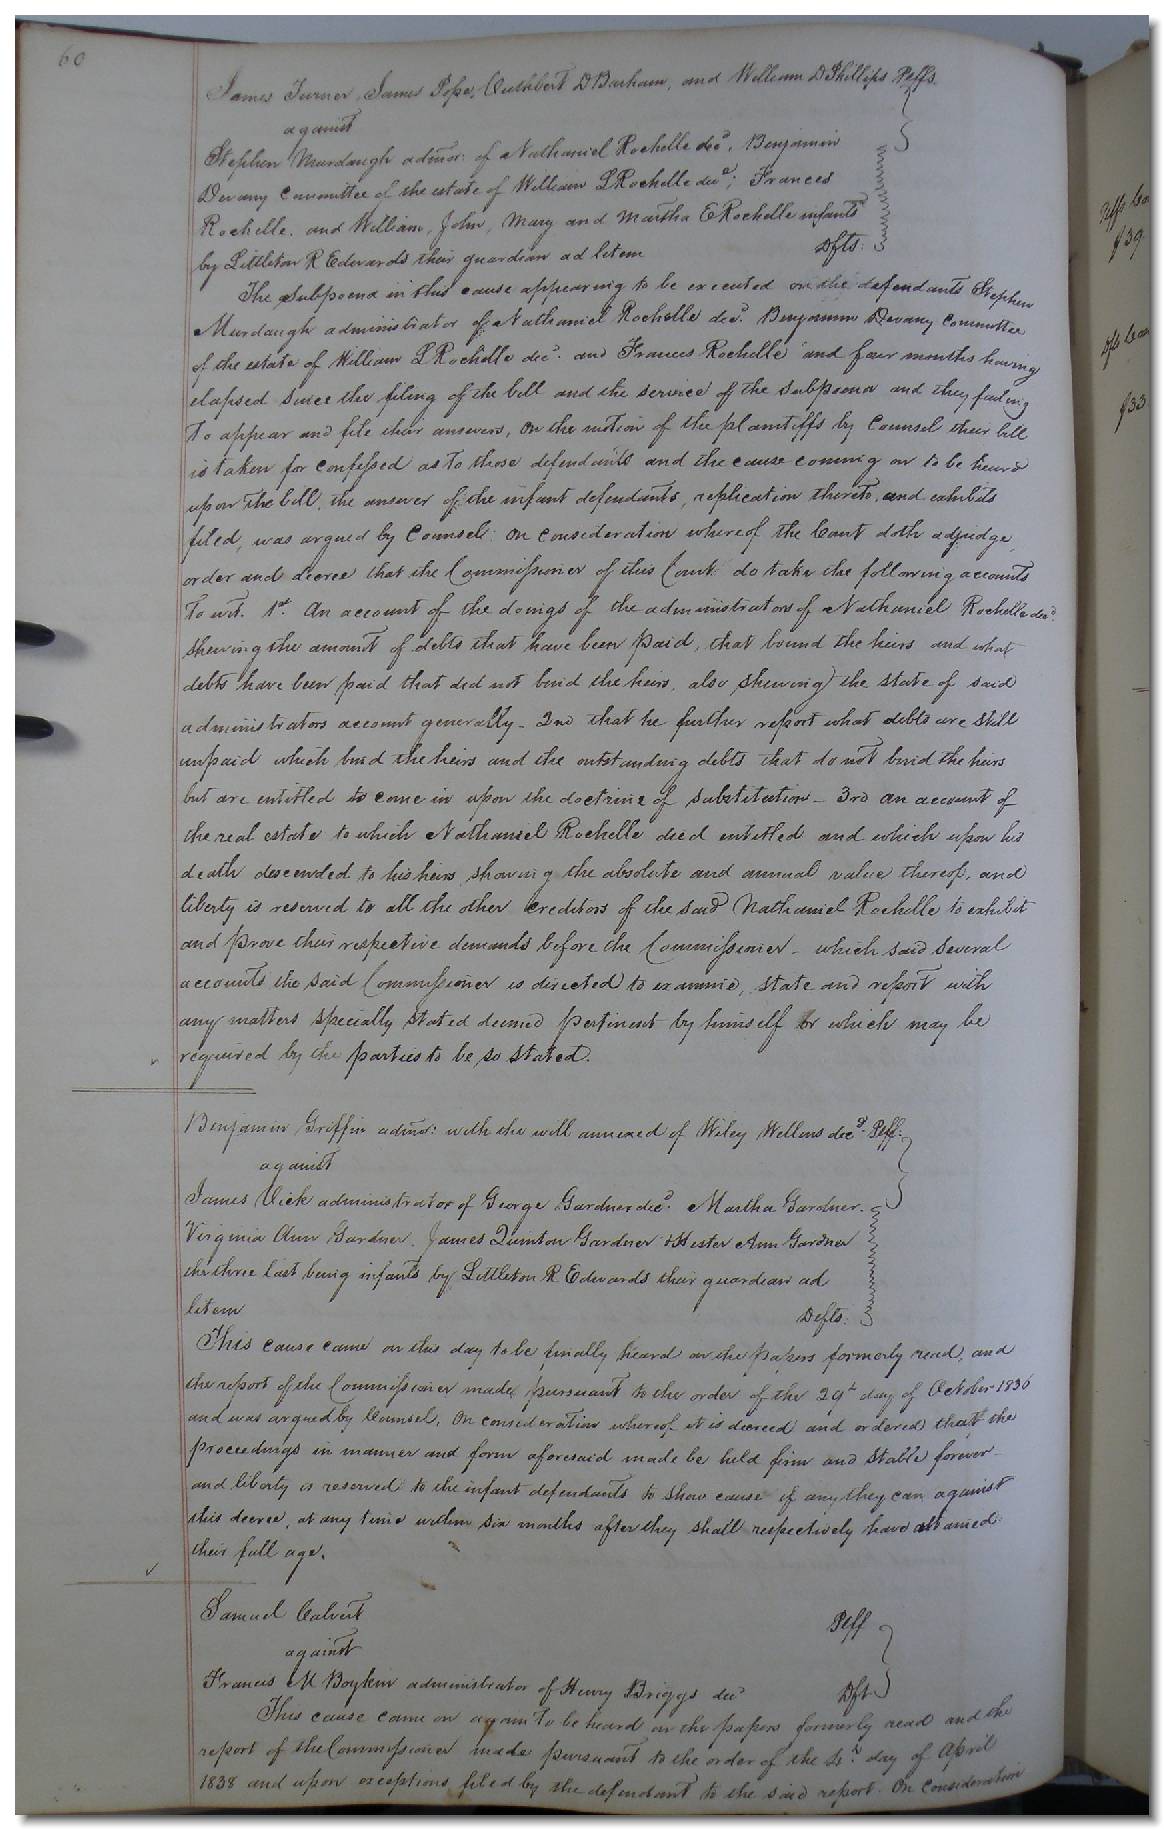 60
James Turner, James Pope, Cuthbert D Barham, and William D Phillips Plffs.
against
Stephen Murdaugh admor: of Nathaniel Rochelle decd. Benjamin
Devany Committee of the estate of William L Rochelle decd; Frances
Rochelle. and William, John, Mary and Martha E Rochelle infants
by Littleton R Edwards their guardian ad litem Dfts:
The Subpoena in this cause appearing to be executed on the defendants Stephen
Murdaugh administrator of Nathaniel Rochelle decd. Benjamin Devany Committee
of the estate of William L Rochelle decd. and Frances Rochelle and four months having
elapsed since the filing of the bill and the service of the Subpoena and they failing
To appear and file their answers, on the motion of the plaintiffs by Counsel their bill
is taken for confessed as to those defendants and the cause coming on to be heard
upon the bill, the answer of the infant defendants, replication thereto, and exhibits
filed, was argued by Counsel: on consideration whereof the Court doth adjudge,
order and decree that the Commissioner of this Court do take the following accounts
To wit. 1st. An account of the doings of the administrators of Nathaniel Rochelle decd.
shewing the amount of debts that have been paid, that bound the heirs and what
debts have been paid that did not bind the heirs, also shewing the state of said
administrators account generally - 2nd that he further report what debts are still
unpaid which bind the heirs and the outstanding debts that do not bind the heirs
but are entitled to come in upon the doctrine of Substitution - 3rd an account of
the real estate to which Nathaniel Rochelle died entitled and which upon his
death descended to his heirs, showing the absolute and annual value thereof, and
liberty is reserved to all the other creditors of the said Nathaniel Rochelle to exhibit
and prove their respective demands before the Commissioner - which said several
accounts the said Commissioner is directed to examine, state and report with
any matters specially stated deemed pertinent by himself or which may be
required by the parties to be so stated.
Benjamin Griffin admor: with the will annexed of Wiley Wellons decd. Plff.
against
James Vick administrator of George Gardner decd. Martha Gardner.
Virginia Ann Gardner, James Quinton Gardner & Hester Ann Gardner
the three last being infants by Littleton R Edwards their guardian ad
litem Defts:
This cause came on this day to be finally heard on the papers formerly read, and
the report of the Commissioner made, pursuant to the order of the 29th day of October 1836
and was argued by Counsel. On consideration whereof it is decreed and ordered that the
proceedings in manner and form aforesaid made be held firm and stable forever -
and liberty is reserved to the infant defendants to show cause if any they can against
this decree, at any time within six months after they shall respectively have attained
their full age.
Samuel Calvert Plff
against
Francis M Boykin administrator of Henry Briggs decd Dft
This cause came on again to be heard on the papers formerly read and the
report of the Commissioner made pursuant to the order of the day of April
1838 and upon exceptions filed by the defendant to the said report. On Consideration
Plffs
$39
$33